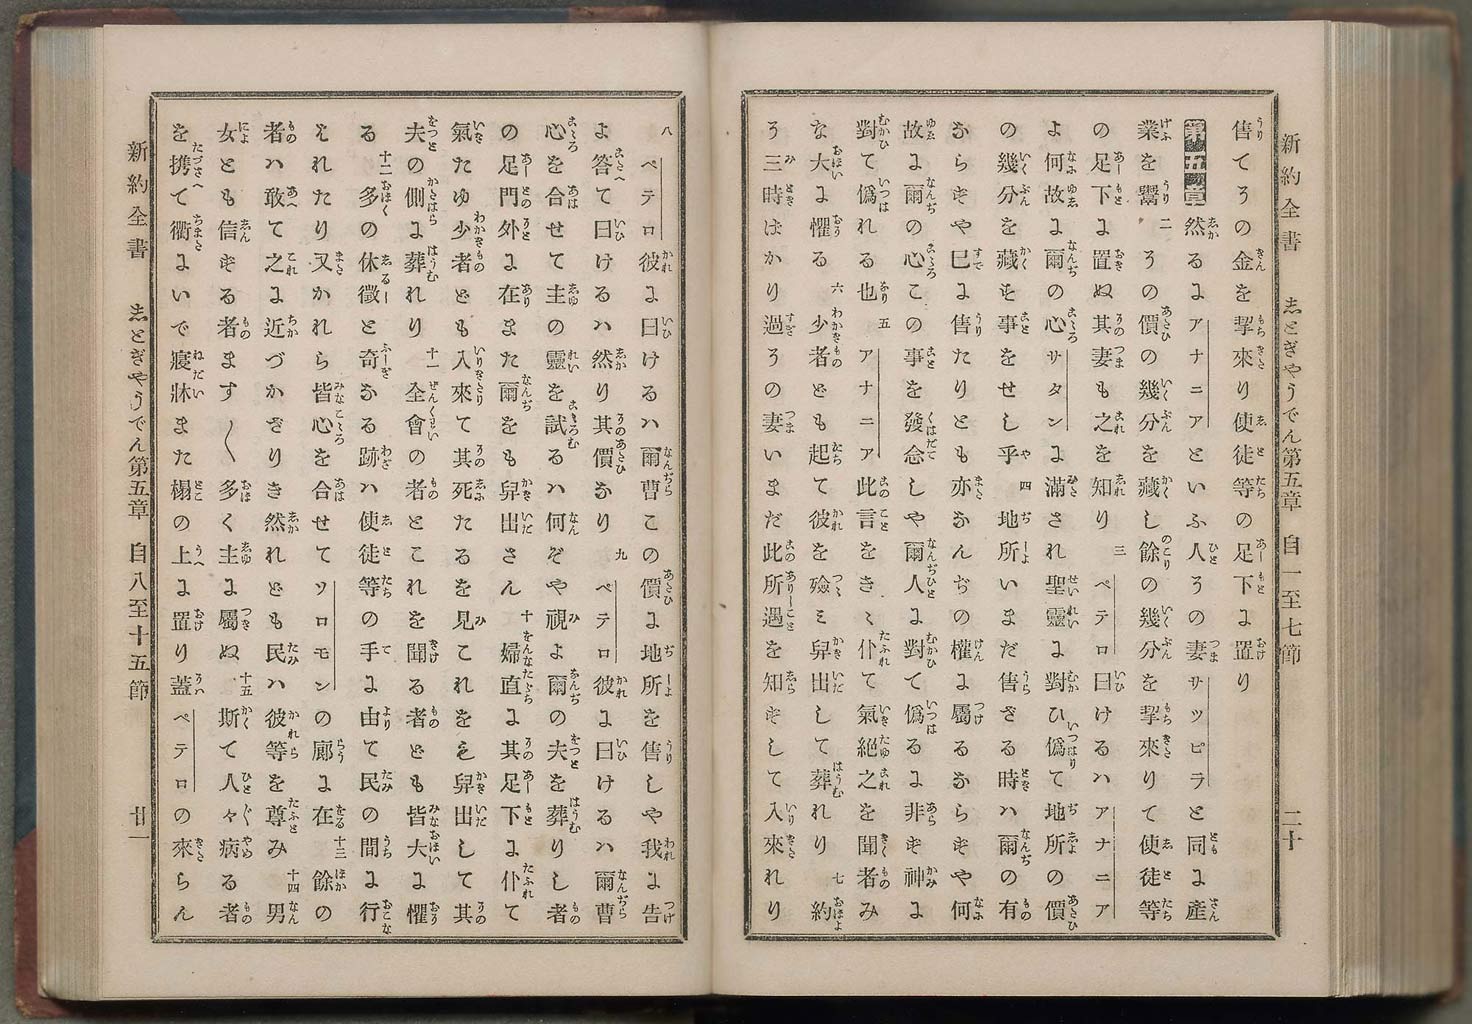 新約全書　志とぎやうでん第五章　自一至七節　二十
售てその金を挈來り使徒等の足下に置り
第五章 然るにアナニアといふ人その妻サツピラと同に產
業を鬻 二 その價の幾分を藏し餘の幾分を挈來りて使徒等
の足下に置ぬ其妻も之を知り 三 ペテロ曰けるハアナニア
よ何故に爾の心サタンに滿され聖靈に對ひ僞て地所の價
の幾分を藏す事をせし乎 四 地所いまだ售ざる時ハ爾の有
ならずや已に售たりとも亦なんぢの權に屬るならずや何
故に爾の心この事を發念しや爾人に對て僞るに非ず神に
對て僞れる也 五 アナニア此言をきゝ仆て氣絕之を聞者み
な大に懼る 六 少者ども起て彼を殮ミ舁出して葬れり 七 約
そ三時ばかり過その妻いまだ此所遇を知ずして入來れり
八 ペテロ彼に曰けるハ爾曹この價に地所を售しや我に告
よ答て曰けるハ然り其價なり 九 ペテロ彼に曰けるハ爾曹
心を合せて主の靈を試るハ何ぞや視よ爾の夫を葬りし者
の足門外に在また爾をも舁出さん 十 婦直に其足下に仆て
氣たゆ少者ども入來て其死たるを見これをも舁出して其
夫の側に葬れり 十一 全會の者とこれを聞る者ども皆大に懼
る 十二 多の休徵と奇なる跡ハ使徒等の手に由て民の間に行
はれたり又かれら皆心を合せてソロモンの廊に在 十三 餘の
者ハ敢て之に近づかざりき然れども民ハ彼等を尊み 十四 男
女とも信ずる者ます〱多く主に屬ぬ 十五 斯て人々病る者
を携て衢にいで寢牀また榻の上に置り蓋ペテロの來らん
新約全書　志とぎやうでん第五章　自八至十五節　廿一